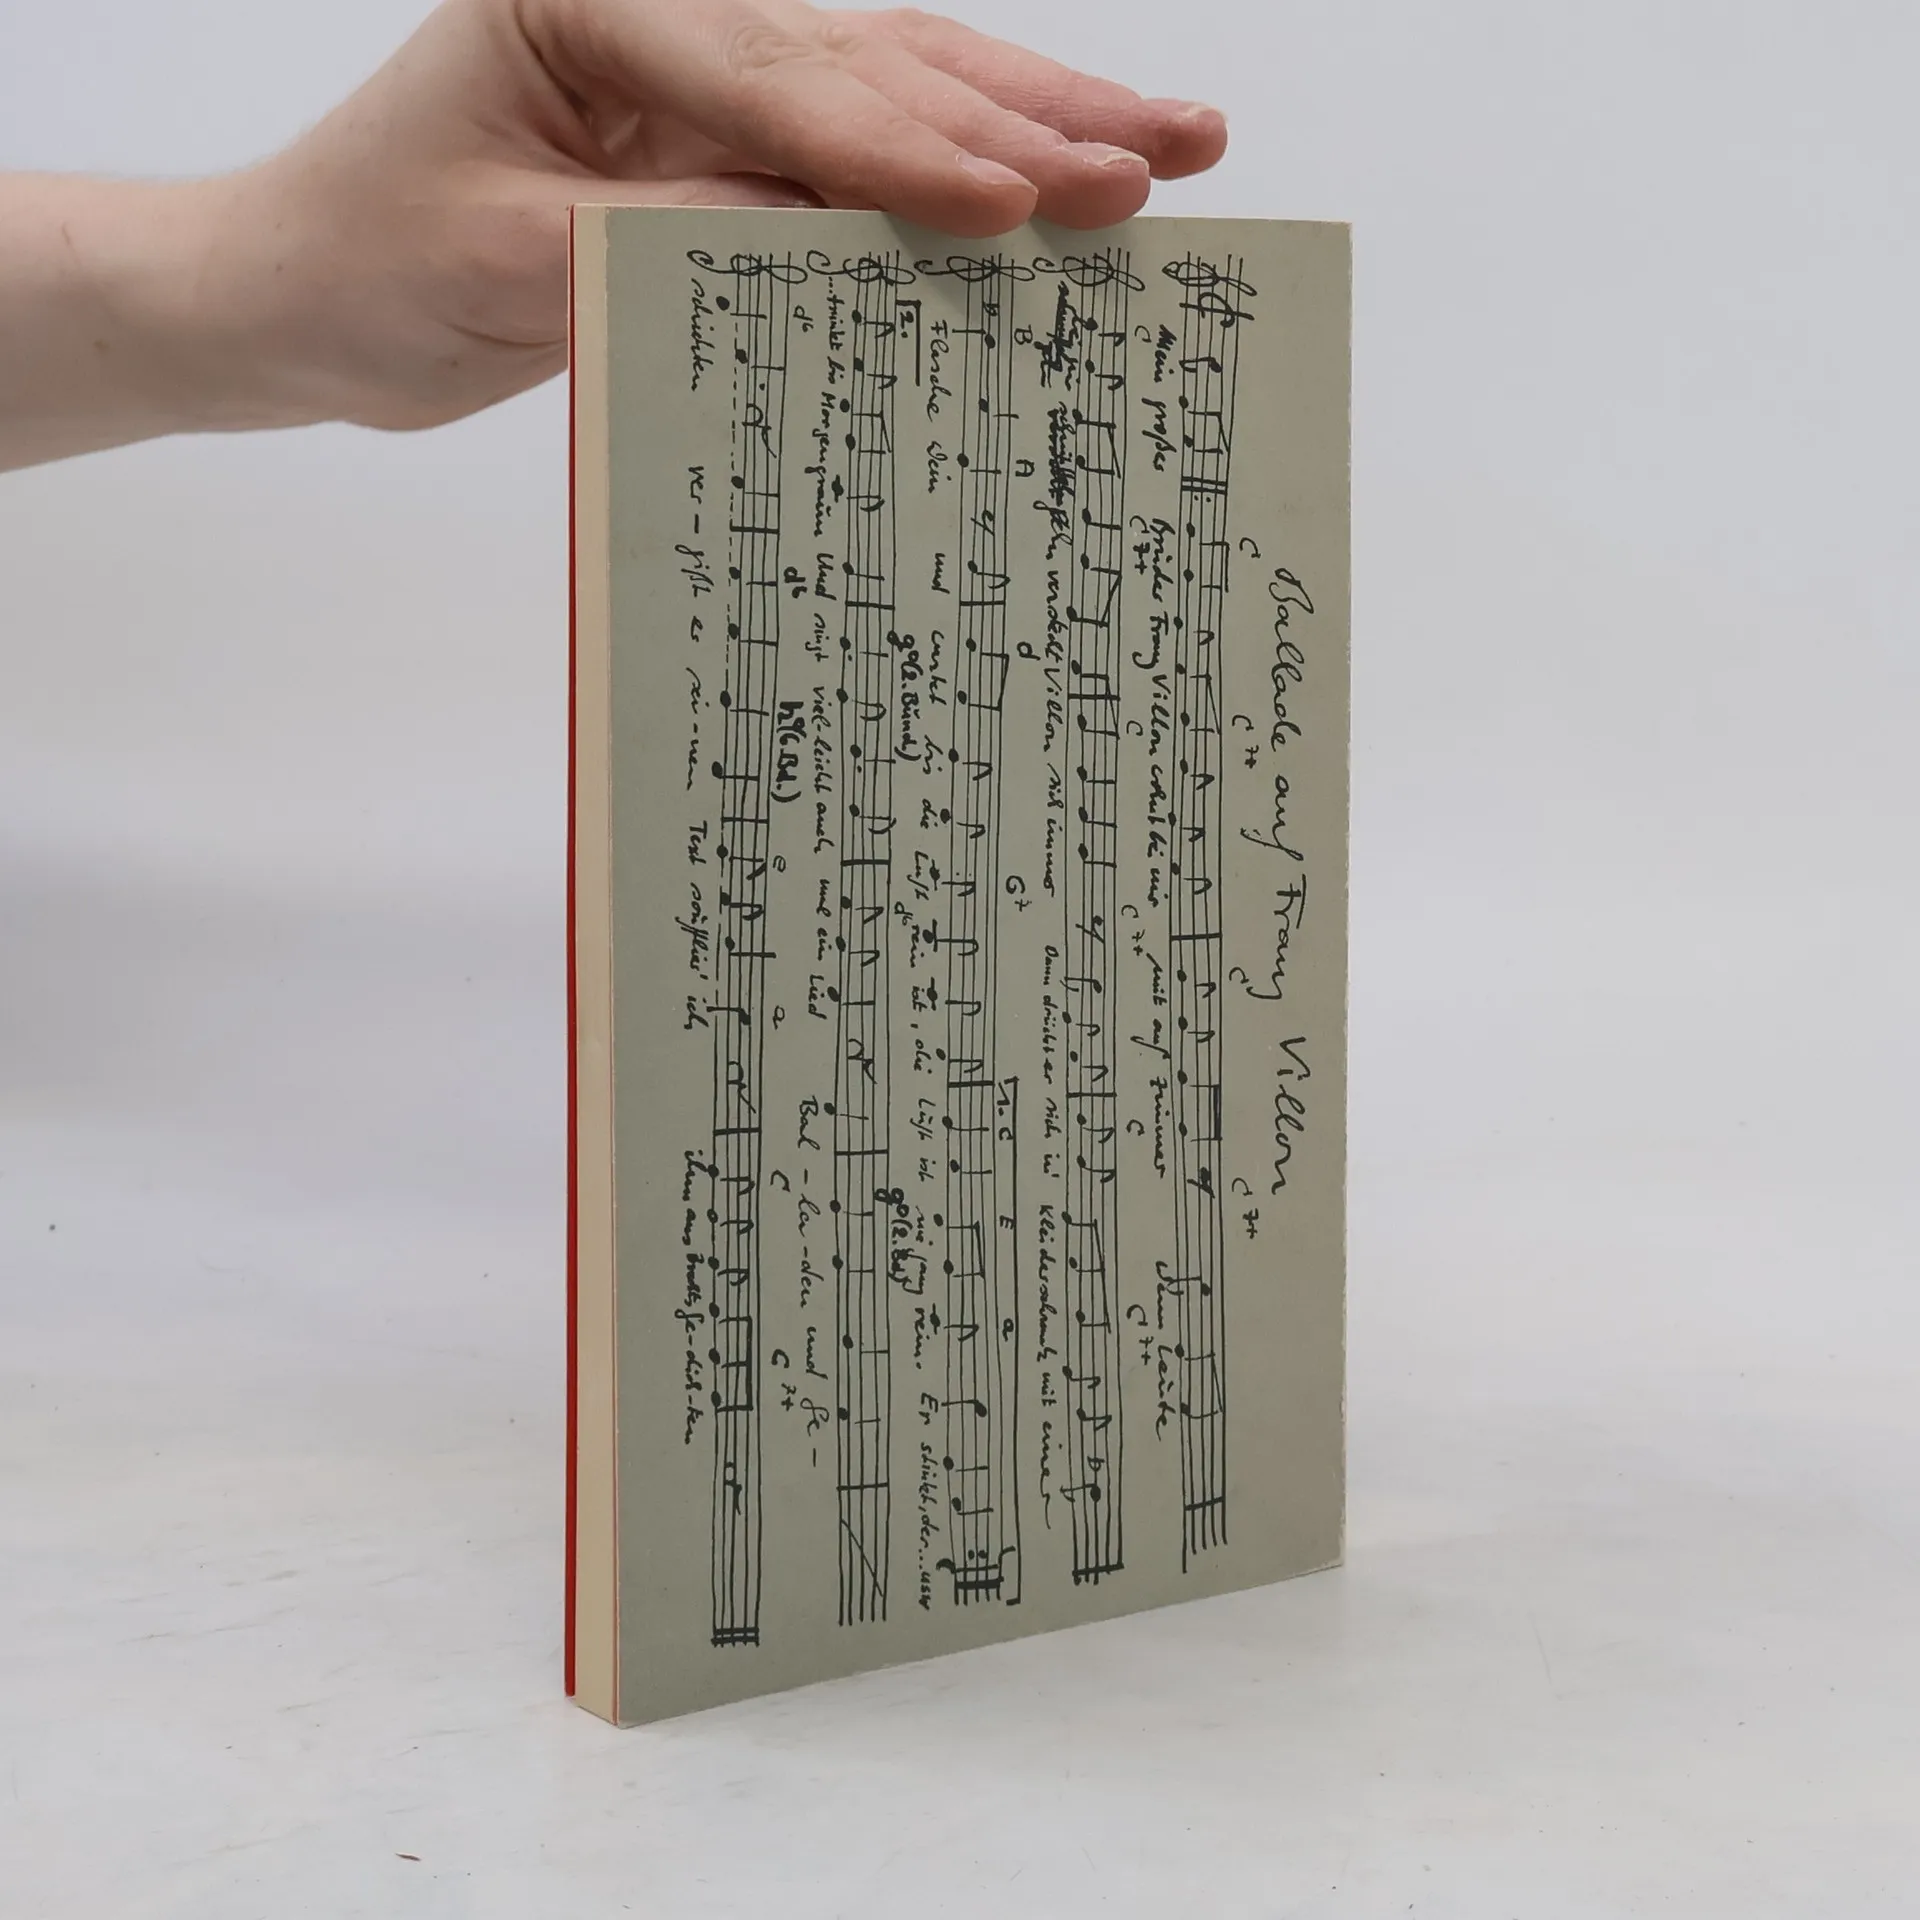 Ballade auf Franz Villon
C C 7+ C C 7+
Mein großer Bruder Franz Villon wohnt bei mir mit auf Zimmer Wenn Leute
C C 7+ C C 7+ C C 7+
schnüffeln versteckt Villon sich immer Dann drückt er sich in' Kleiderschrank mit einer
B A d G7 1. C E a
Flasche Wein und wartet bis die Luft rein ist, die Luft ist nie ganz rein. Er stinkt, der... usw
2. g°(2. Bund) d6 g°(2. Bd)
...trinkt bis Morgengraun Und singt vielleicht auch mal ein Lied Bal-la-den und Ge-
d6 d6 h°(6. Bd.) e a C C 7+
schichten ver-gißt er sei-nen Text soufflier' ich ihm aus Brechts Ge-dich-ten